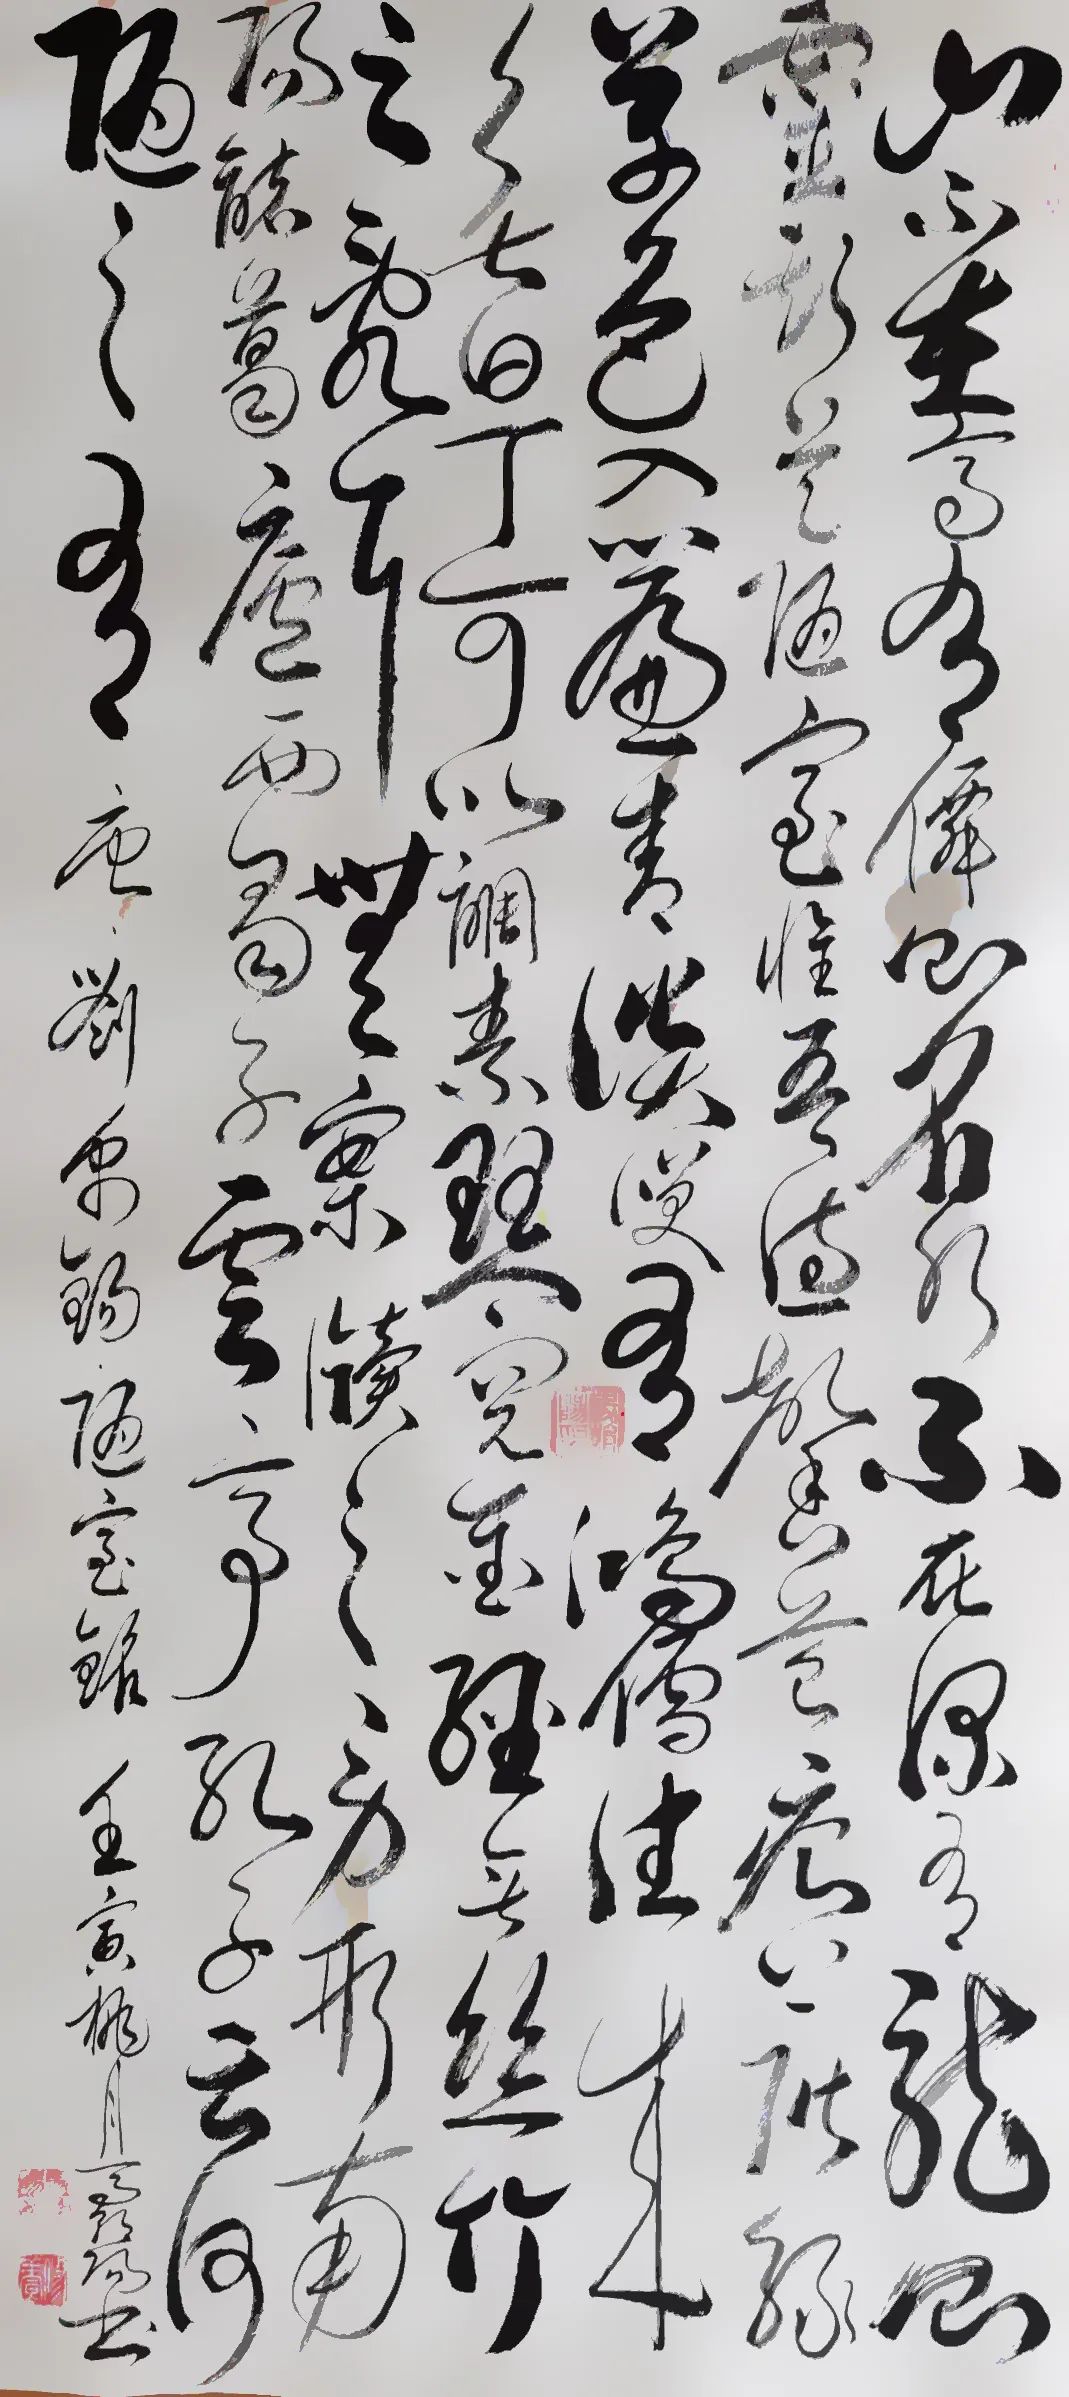 山不在高有僊則名水不在深有龍則
靈斯是陋室惟吾德馨苔痕上階綠
草色入簾青談笑有鴻儒往來
無白丁可以調素琴閱金經無絲竹
之亂耳無案牘之勞形南
陽諸葛廬西蜀子雲亭孔子云何
陋之有 唐劉禹錫陋室銘 壬寅桃月書